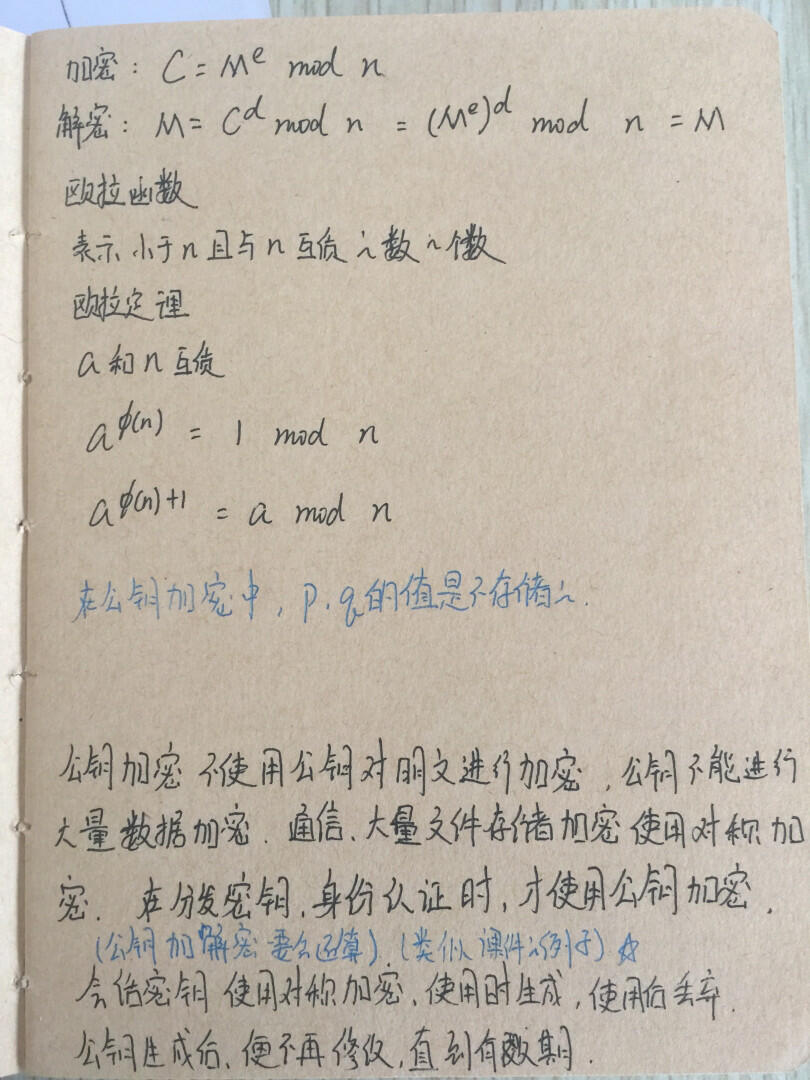 加密: C = M^e mod n
解密: M = C^d mod n = (M^e)^d mod n = M
欧拉函数
表示小于n且与n互质的数的个数
欧拉定理
a和n互质
a^ϕ(n) = 1 mod n
a^ϕ(n)+1 = a mod n
在公钥加密中, p、q的值是不存储的.
公钥加密不使用公钥对明文进行加密,公钥不能进行
大量数据加密. 通信、大量文件存储加密使用对称加
密. 在分发密钥,身份认证时,才使用公钥加密.
(公钥加解密要会运算). (类似课件的例子) ☆
会话密钥使用对称加密,使用时生成,使用后丢弃.
公钥生成后、便不再修改,直到有效期.